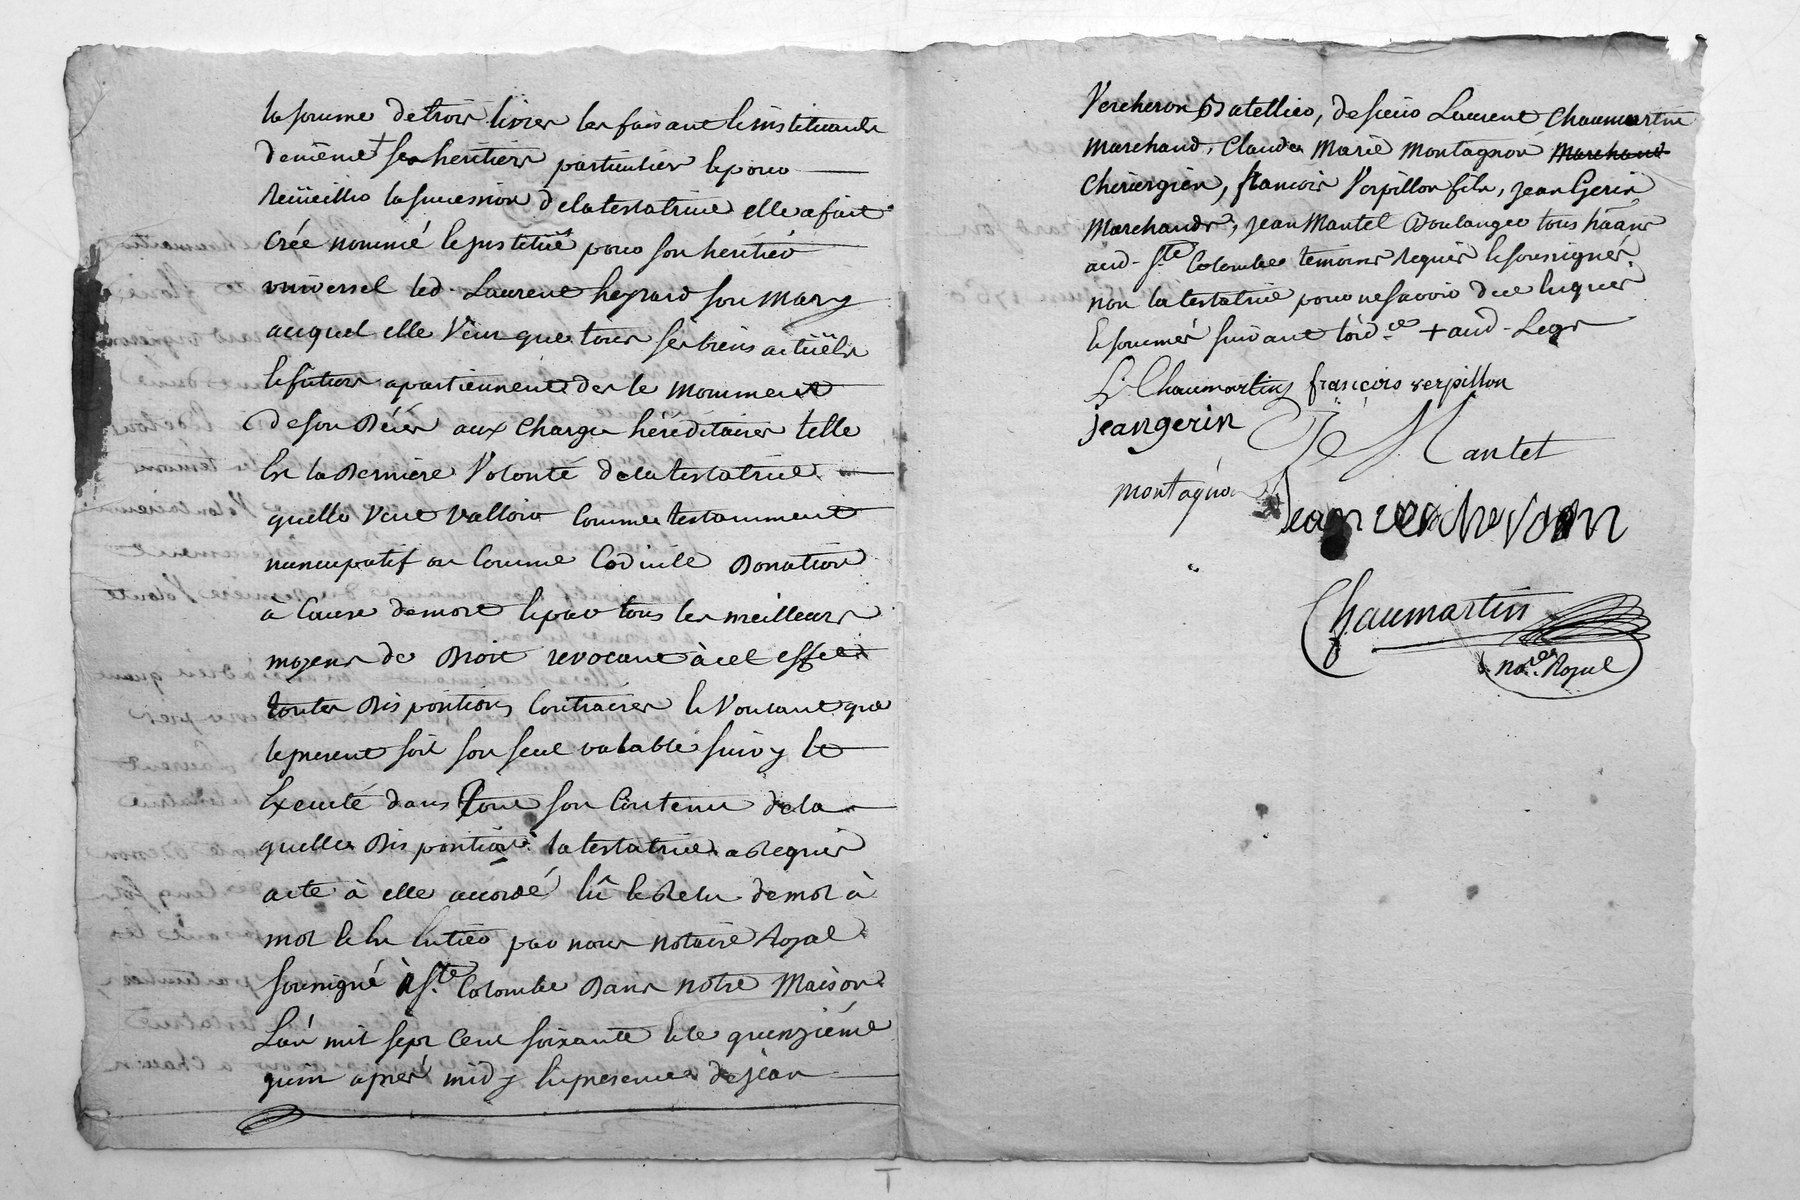 la somme de trois livres les faisant & instituants
de même + ses heritiers particulier & pour
Recüeillir la succession de la testatrice elle a fait
créé nommé & jnstitué pour son heritier
universel led. Laurent heyrard son mary
auquel elle veut que tous ses biens actüels
& futurs apartiennent des le momment
de son décés aux charges héréditaires telle
Est la derniere volonté de la testatrice
quelle veut valloir comme testamment
nuncupatif ou comme codicile Donation
à cause de mort & par tous les meilleurs
moyens de Droit revocant à cet effet
toutes Dispositions contraires & voulant que
le present soit son seul valable suivy &
Executé dans tout son contenu de la
quelle Disposition la testatrice a Requis
acte à elle accordé lû & Relu de mot à
mot & En Entier par nous notaire Royal
soussigné à Ste. Colombe Dans notre Maison
L'an mil sept cent soixante & le quinziéme
juin aprés midy En presence de jean
Vercheron Batellier, de sieurs Laurent Chaumartin
marchand, Claude Marie Montagnon marchand
Chirurgien, francois Verpillon fils, jean Gerin
Marchands, jean Mantel Boulanger tous hãans
aud. Ste. Colombe temoins requis & soussignés
non la testatrice pour ne savoir de ce Enquise
& sommée suivant l'ord.ce + aud. Legs
L. Chaumartin françois verpillon
jean gerin Je Mantel
montagnon
Jean vercheron
Chaumartin
no.re Royal